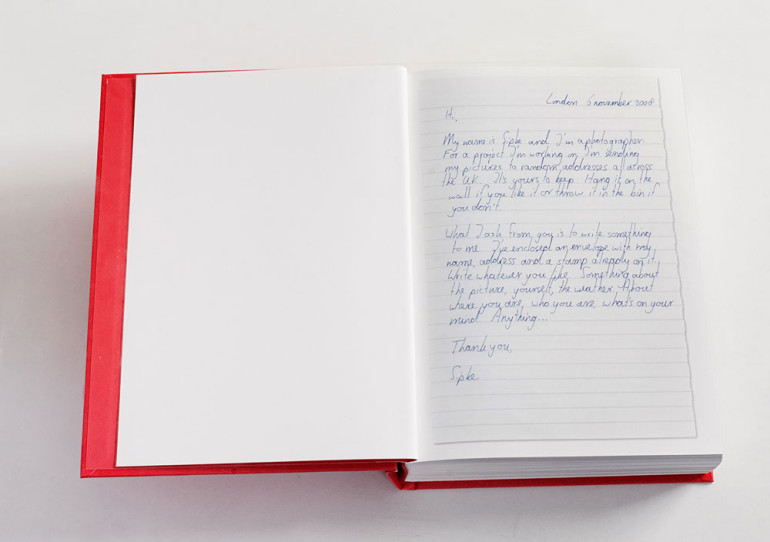 London 6 november 2008
Hi,
My name is Spke and I'm a photographer.
For a project I'm working on I'm sending
my pictures to random addresses all across
the UK. It's yours to keep. Hang it on the
wall if you like it or throw it in the bin if
you don't.
What I ask from you is to write something
to me. I've enclosed an envelope with my
name, address and a stamp already on it.
Write whatever you like. Something about
the picture, yourself, the weather. About
where you are, who you are, what's on your
mind. Anything...
Thank you,
Spke